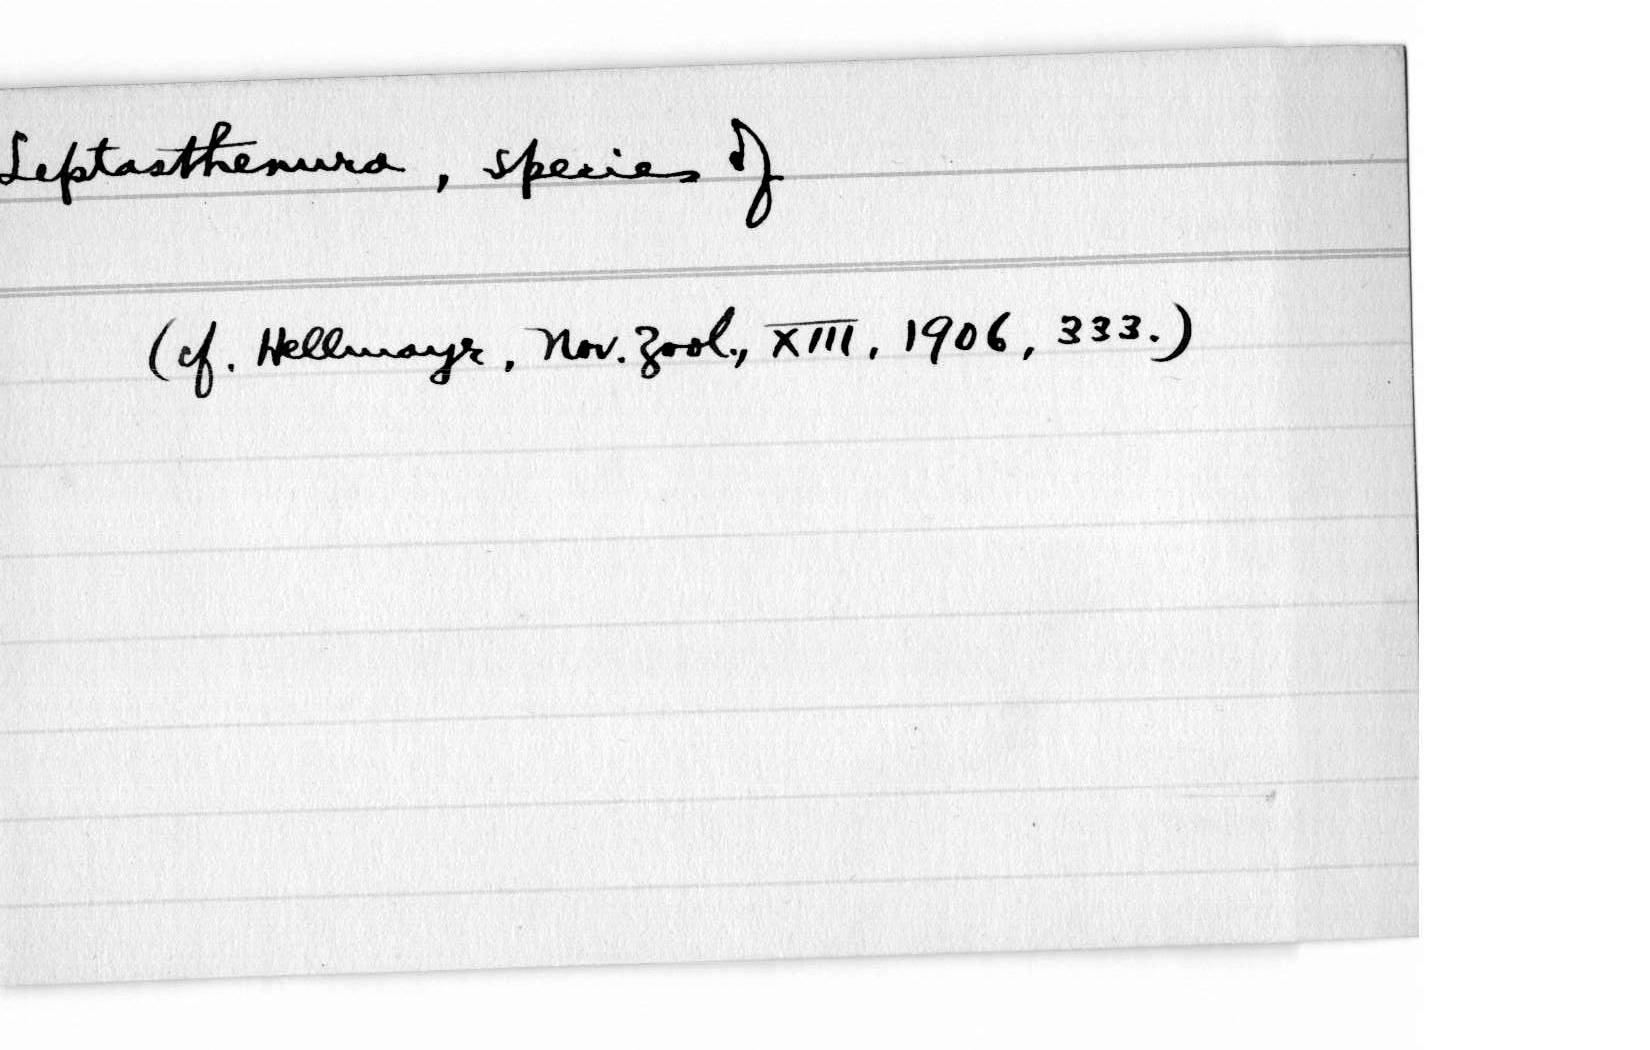 Leptasthenura, species of
(cf. Hellmayr, Nov. Zool., XIII, 1906, 333.)